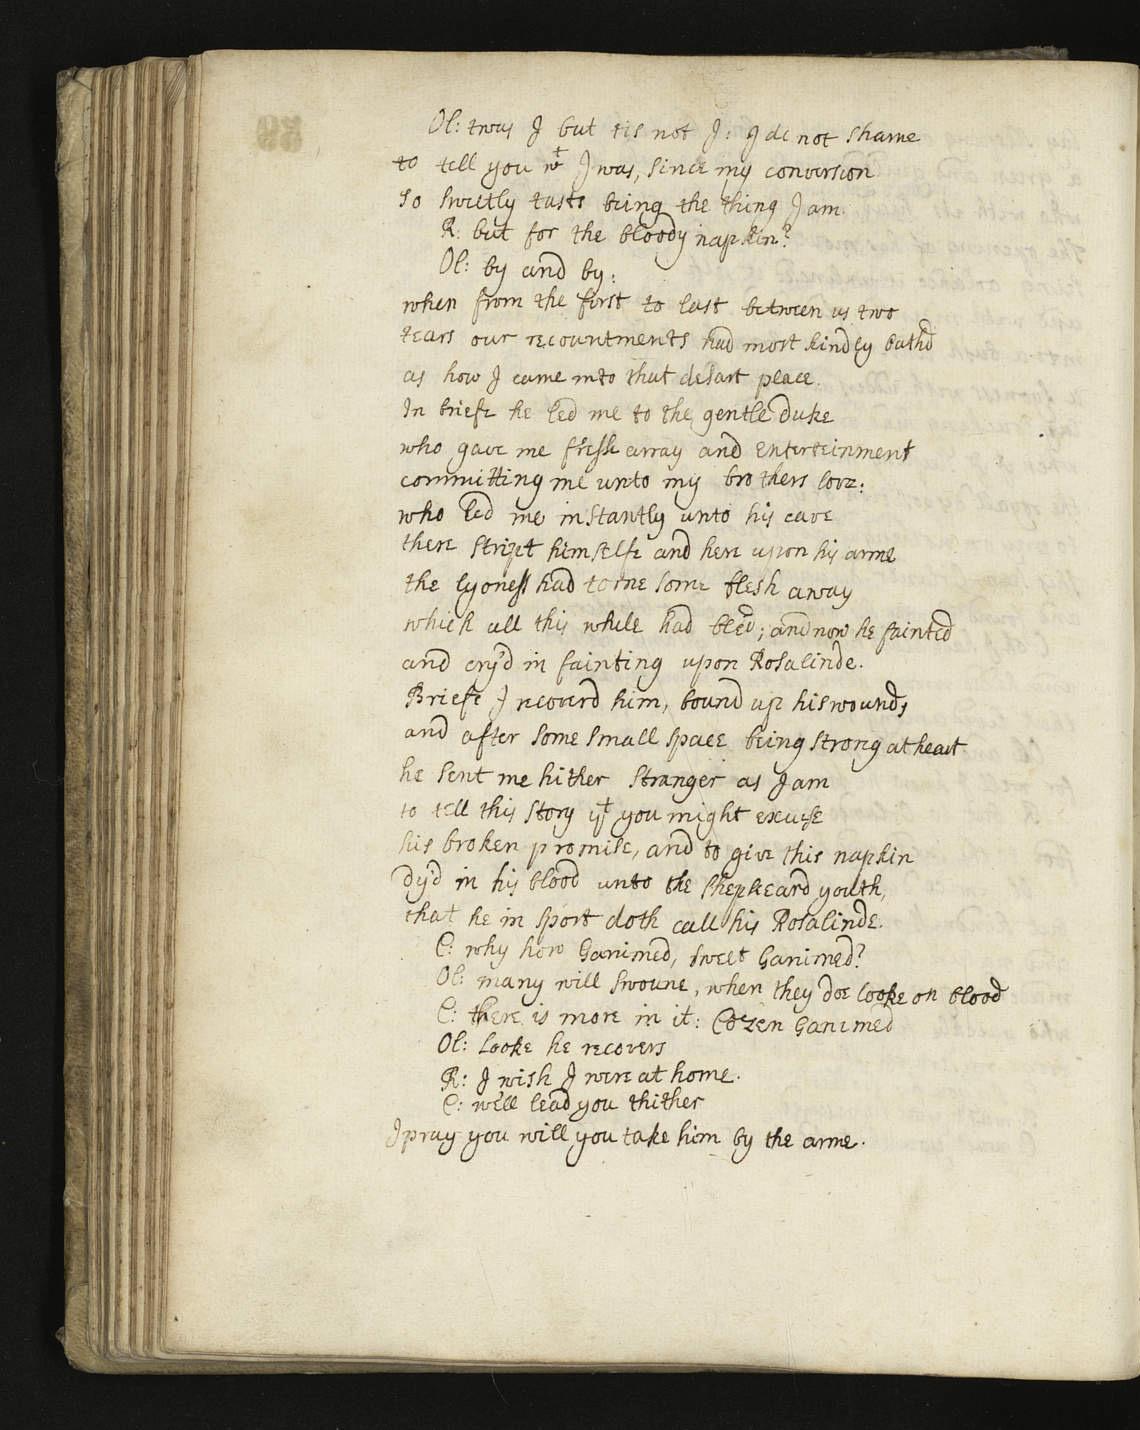 Ol: twas I but tis not I: I do not shame
to tell you wt I was, since my conversion
so sweetly tasts being the thing I am.
R: but for the bloody napkin?
Ol: by and by:
when from the first to last between us two
tears our recountments had most kindly bathd
as how I came into that desart place.
In briefe he led me to the gentle duke
who gave me fresh array and enterteinment
committing me unto my brothers love:
who led me instantly unto his cave
there stript himselfe and here upon his arme
the lyoness had torne some flesh away
which all this while had bled; and now he fainted
and cry'd in fainting upon Rosalinde.
Briefe I recoverd him, bound up his wounds
and after some small space being strong at heart
he sent me hither stranger as I am
to tell this story yt you might excuse
his broken promise, and to give this napkin
dy'd in his blood unto the shepheard youth,
that he in sport doth call his Rosalinde.
C: why how Ganimed, sweet Ganimed?
Ol: many will swoune, when they doe looke on blood
C: there is more in it: Cozen Ganimed
Ol: looke he recovers
R: I wish I were at home.
C: we'll lead you thither
I pray you will you take him by the arme.